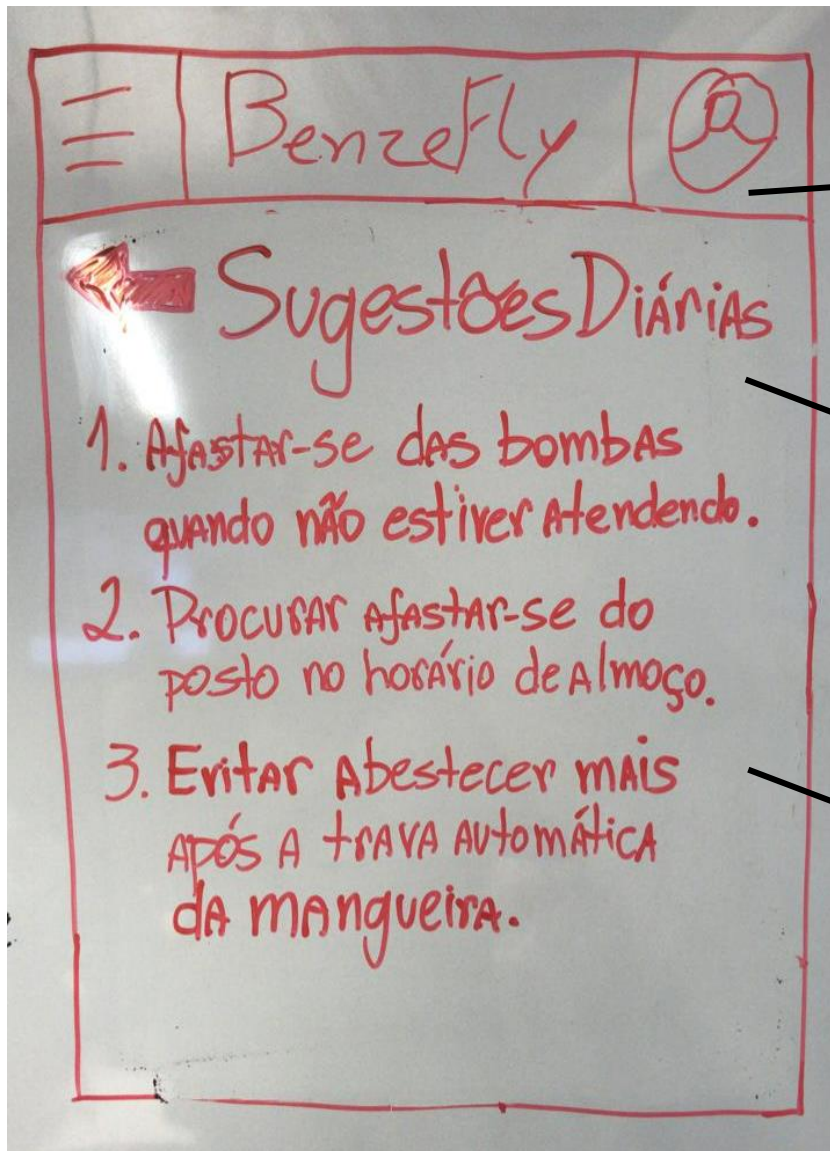 BenzeFly
Sugestões Diárias
1. Afastar-se das bombas
quando não estiver atendendo.
2. Procurar afastar-se do
posto no horário de almoço.
3. Evitar abestecer mais
após a trava automática
da mangueira.